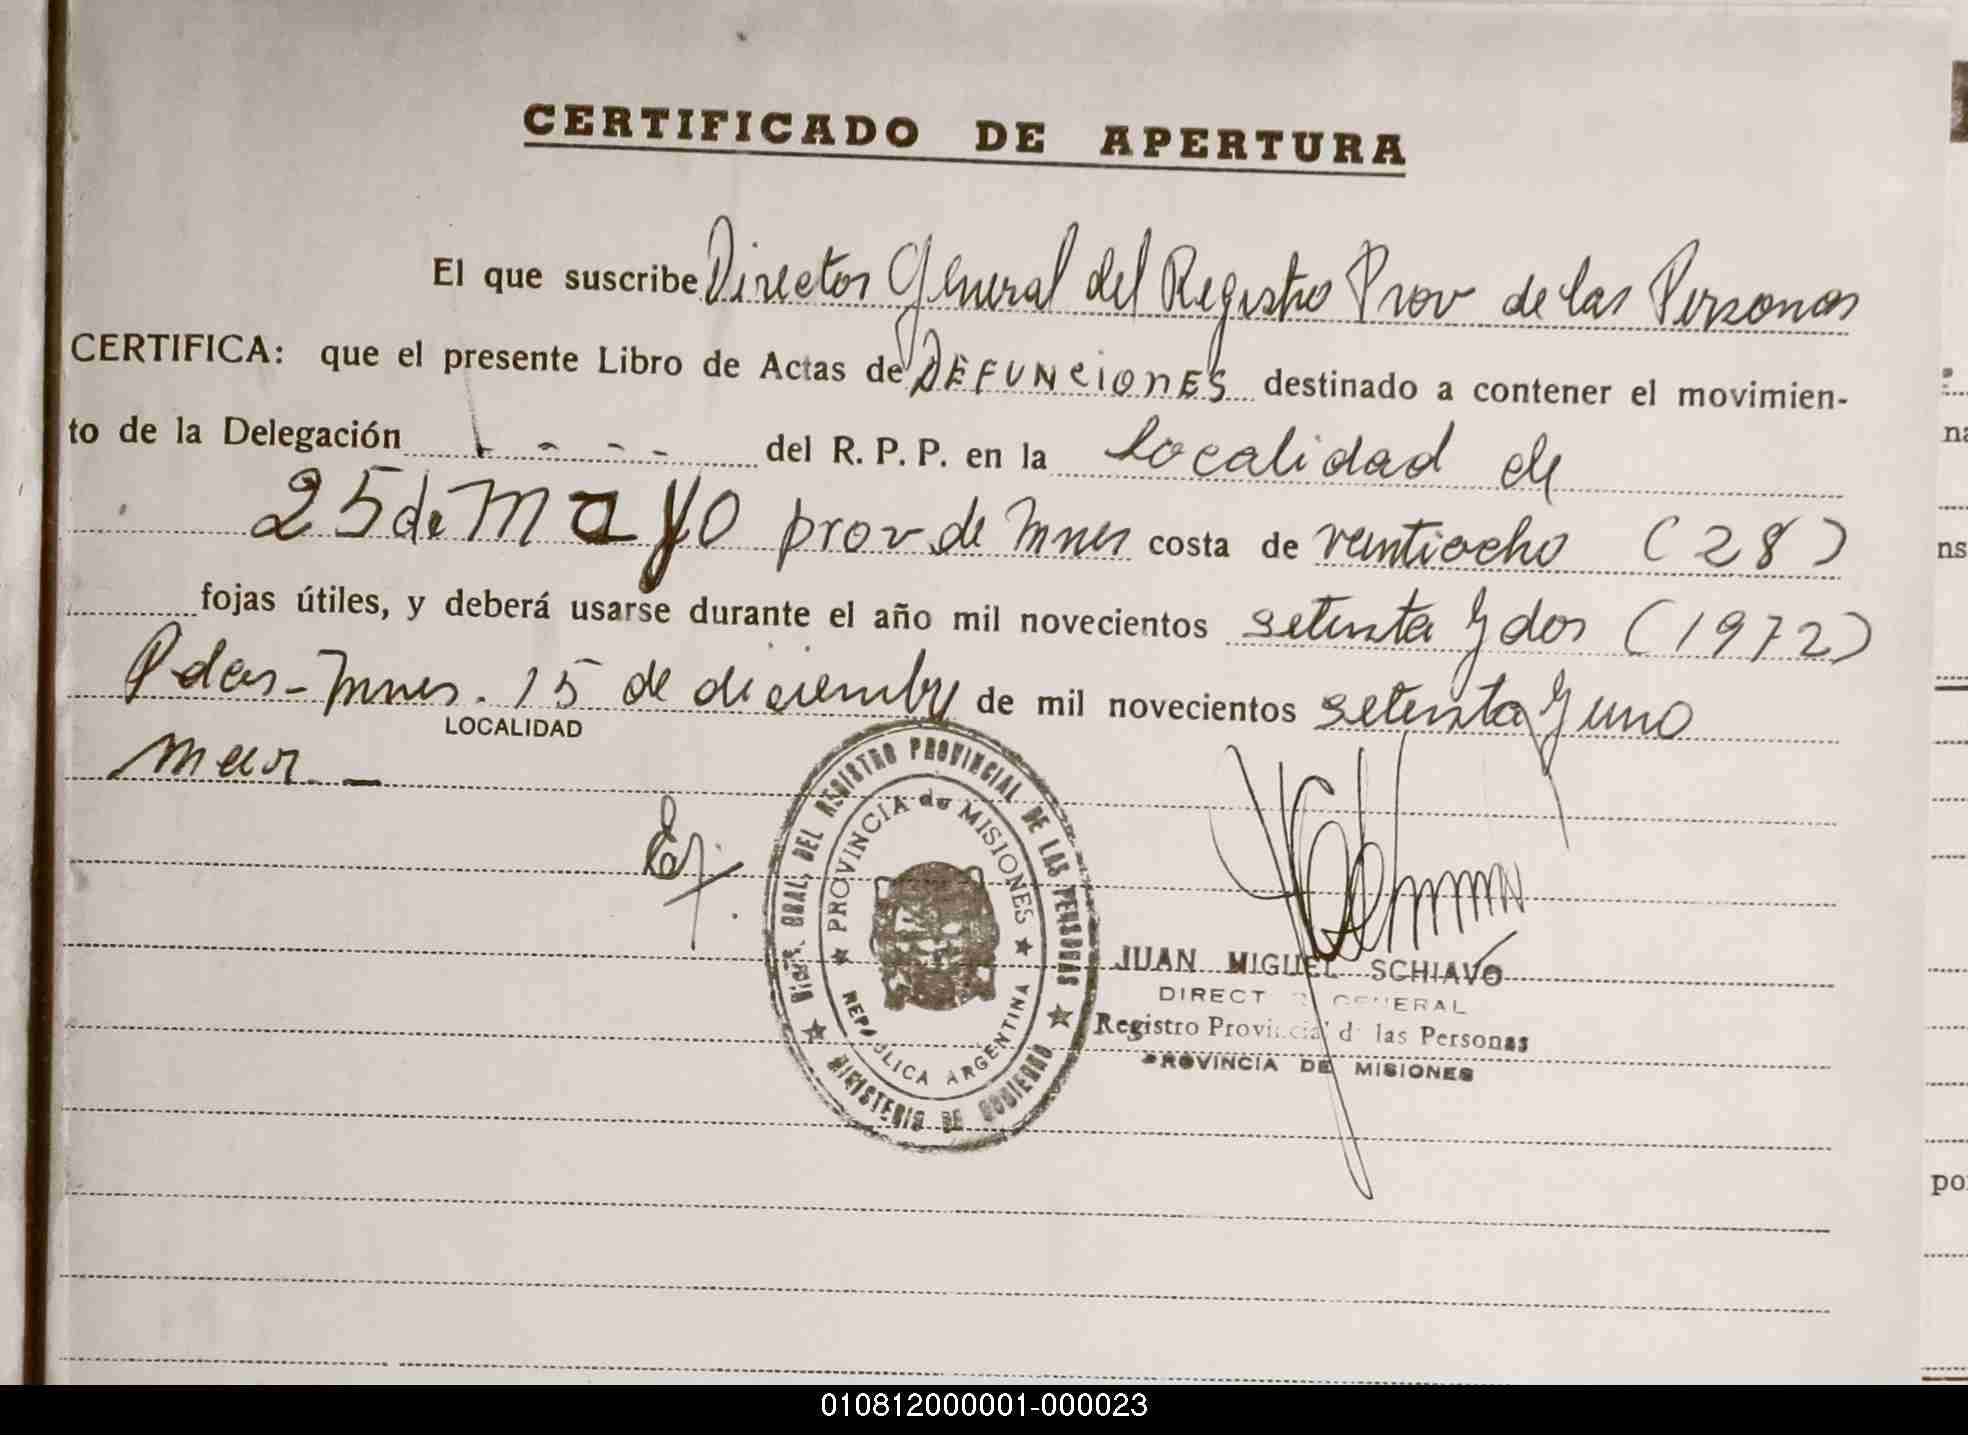 CERTIFICADO DE APERTURA
El que suscribe Director General del Registro Prov de las Personas
CERTIFICA: que el presente Libro de Actas de DEFUNCIONES destinado a contener el movimien-
to de la Delegación - - - del R. P. P. en la localidad de
25 de Mayo prov de Mnes costa de veintiocho (28)
fojas útiles, y deberá usarse durante el año mil novecientos setenta y dos (1972)
Pdas - Mnes. 15 de diciembre de mil novecientos setenta y uno
LOCALIDAD
DIREC. GRAL. DEL REGISTRO PROVINCIAL DE LAS PERSONAS
MINISTERIO DE GOBIERNO
PROVINCIA de MISIONES
REPÚBLICA ARGENTINA
JUAN MIGUEL SCHIAVO
DIRECTOR GENERAL
Registro Provincial de las Personas
PROVINCIA DE MISIONES
na
ns
po
010812000001-000023